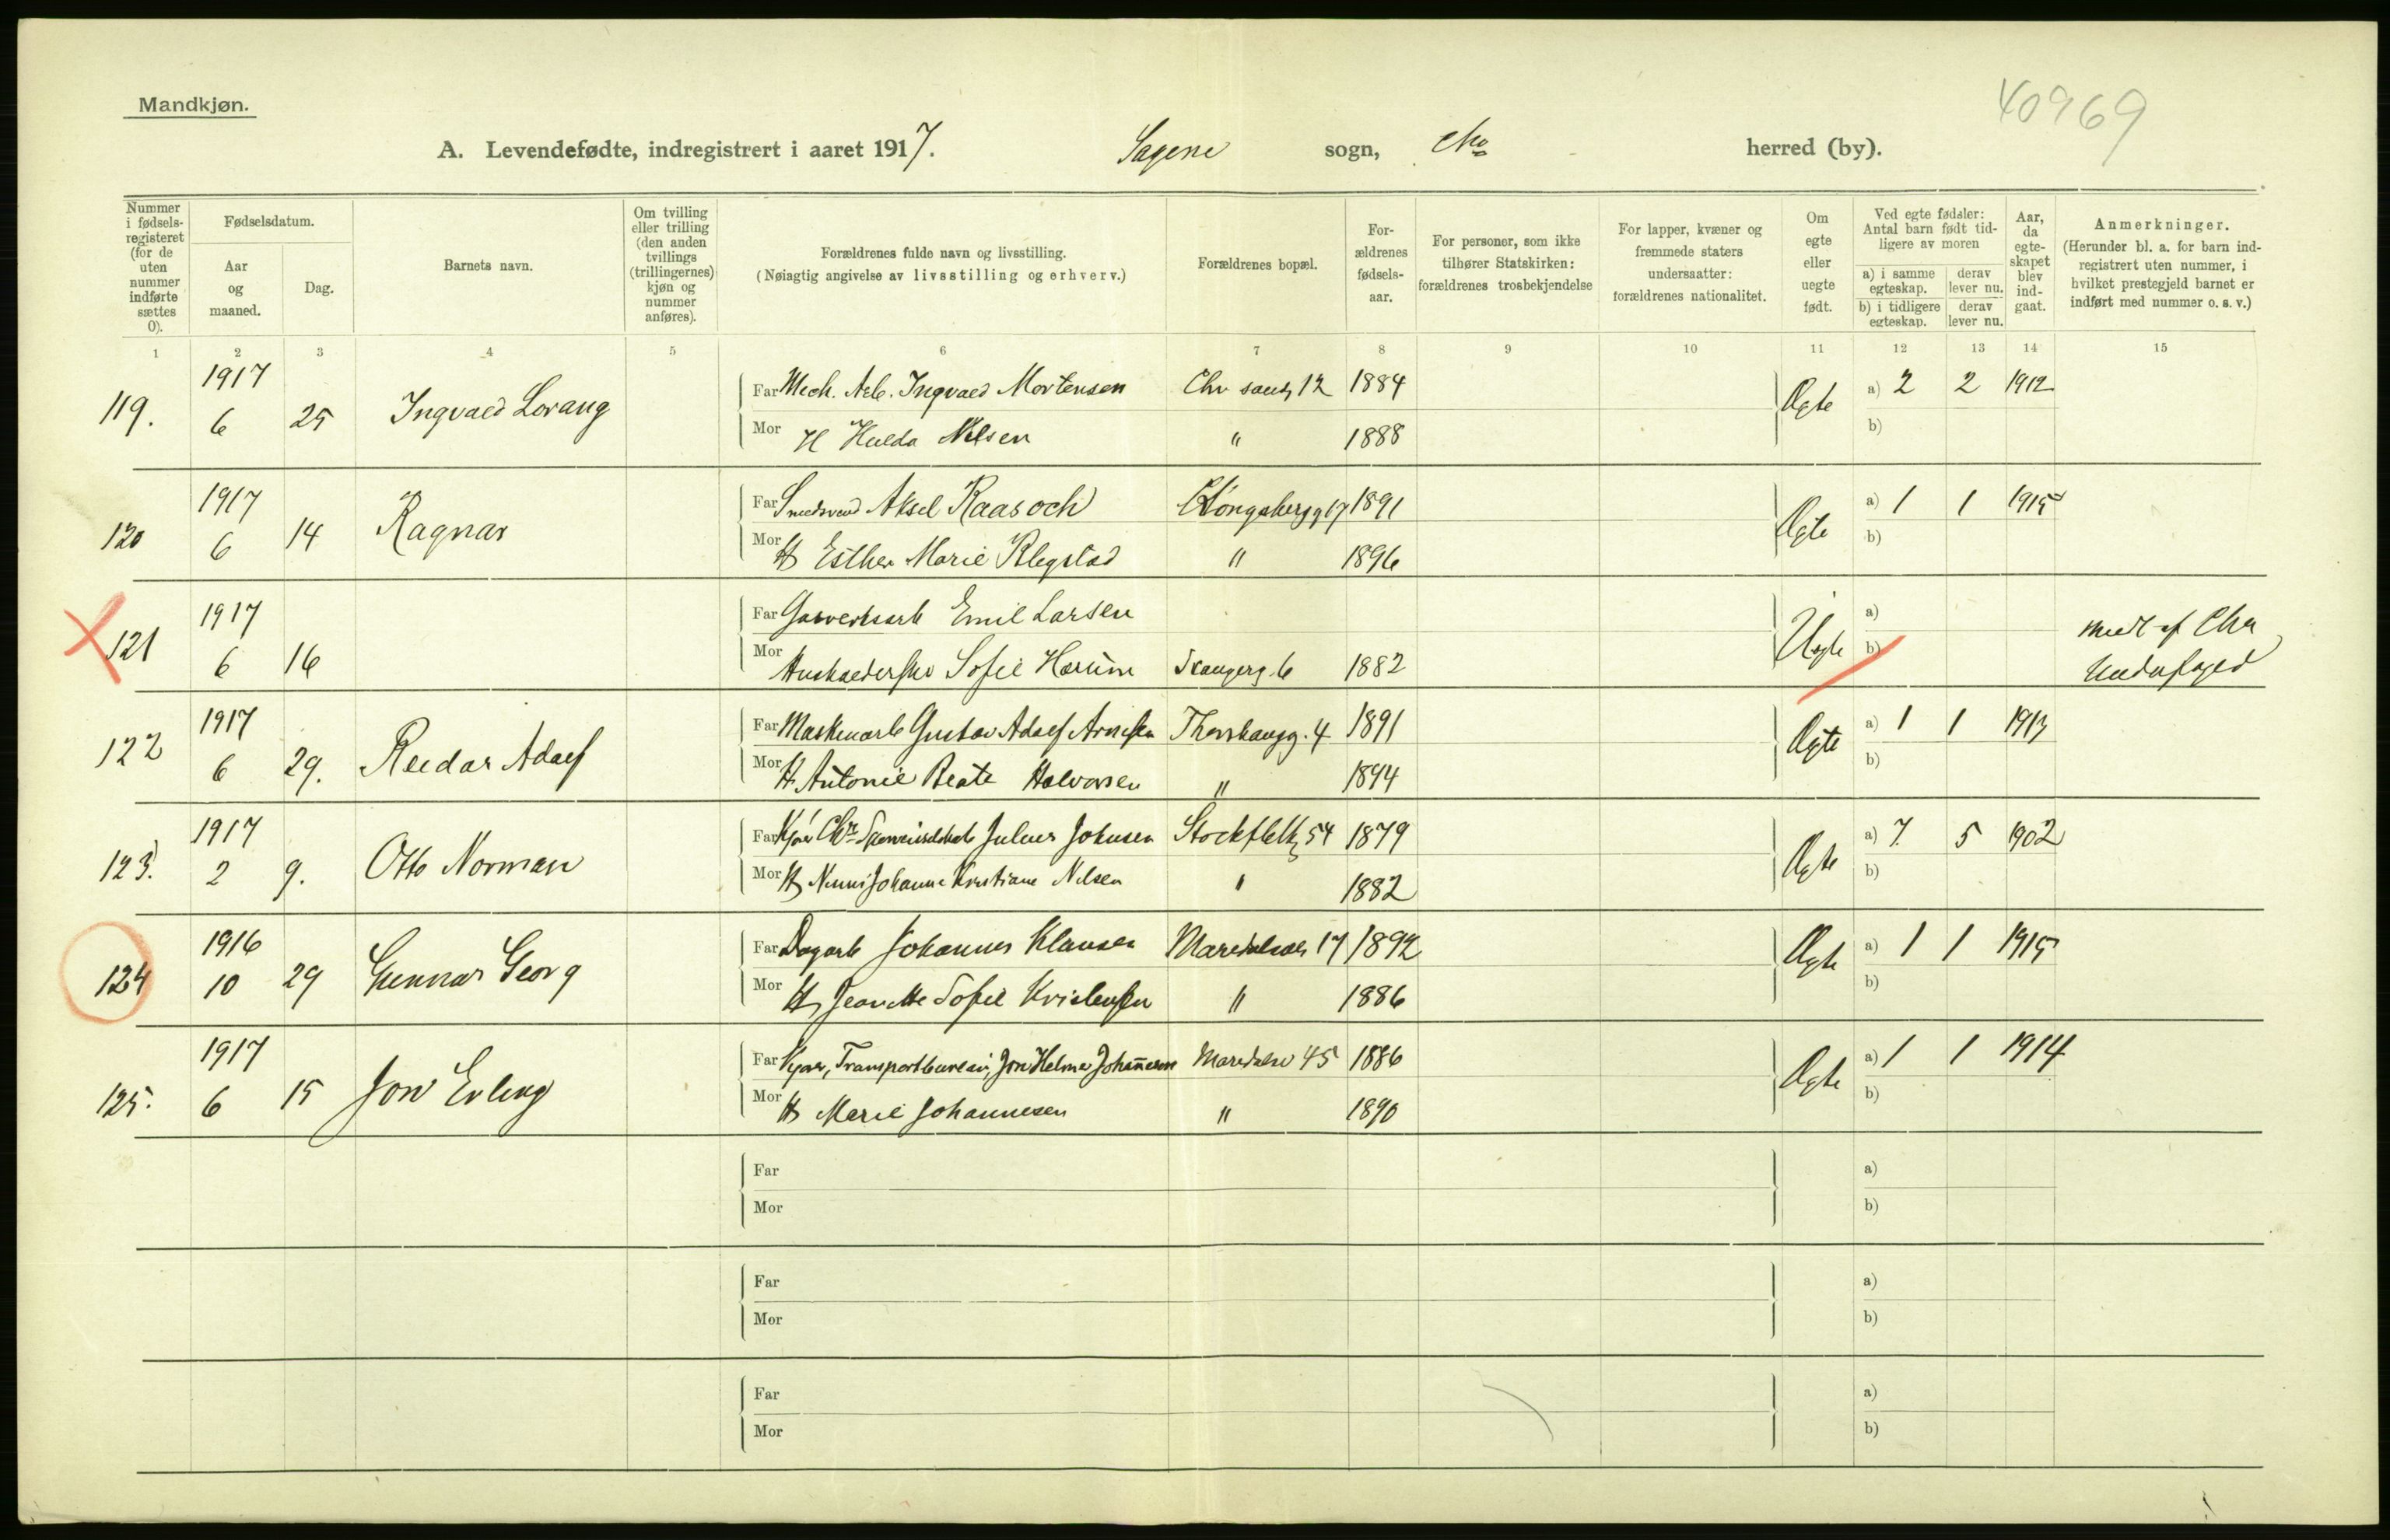 Mandkjøn.
40969
A. Levendefødte, indregistrert i aaret 1917. Sagene sogn, Chra herred (by).
Nummer i fødsels-registeret (for de uten nummer indførte sættes 0).
Fødselsdatum.
Aar og maaned.
Dag.
Barnets navn.
Om tvilling eller trilling (den anden tvillings (trillingernes) kjøn og nummer anføres).
Forældrenes fulde navn og livsstilling.
(Nøiagtig angivelse av livsstilling og erhverv.)
Forældrenes bopæl.
For-ældrenes fødsels-aar.
For personer, som ikke tilhører Statskirken: forældrenes trosbekjendelse
For lapper, kvæner og fremmede staters undersaatter: forældrenes nationalitet.
Om egte eller uegte født.
Ved egte fødsler: Antal barn født tid-ligere av moren
a) i samme egteskap. derav lever nu.
b) i tidligere egteskap. derav lever nu.
Aar, da egte-skapet blev ind-gaat.
Anmerkninger.
(Herunder bl. a. for barn ind-registrert uten nummer, i hvilket prestegjeld barnet er indført med nummer o. s. v.)
1 2 3 4 5 6 7 8 9 10 11 12 13 14 15
1917 Far Mech. Arb. Ingvald Mortensen Chr sandg 12 1884 a) 2 2 1912
119. 6 25 Ingvald Lorang Ægte
Mor H Hulda Nilsen " 1888 b)
1917 Far Smedsvend Aksel Raasoch Kongsbergg 17 1891 a) 1 1 1915
120 6 14 Ragnar Ægte
Mor H Esther Marie Klegstad " 1896 b)
1917 Far Gasverksarb Emil Larsen a)
121 6 16 Uegte
Mor Sofie Horum Stangerg. 6 1882 b)
1917 Far Maskinarb Gustav Adolf Arnesen Thorshaugg. 4 1891 a) 1 1 1913
122 6 29. Reidar Adolf Ægte
Mor H Antonie Beate Halvorsen " 1894 b)
1917 Far Kjør Julius Johnsen Stockflethg 54 1879 a) 7. 5 1902
123. 2 9. Otto Norman Ægte
Mor H Nenni Johanne Kristiane Nilsen " 1882 b)
1916 Far Dagarb Johannes Klausen Maridalsv 17 1892 a) 1 1 1915
124 10 29 Gunnar Georg Ægte
Mor H Jeanette Sofie Kristensen " 1886 b)
1917 Far Kjør, Transportbureau, Jon Helmer Johannesen Maridalsv 45 1886 a) 1 1 1914
125. 6 15 Jon Erling Ægte
Mor H Marie Johannesen " 1890 b)
Far a)
Mor b)
Far a)
Mor b)
Far a)
Mor b)